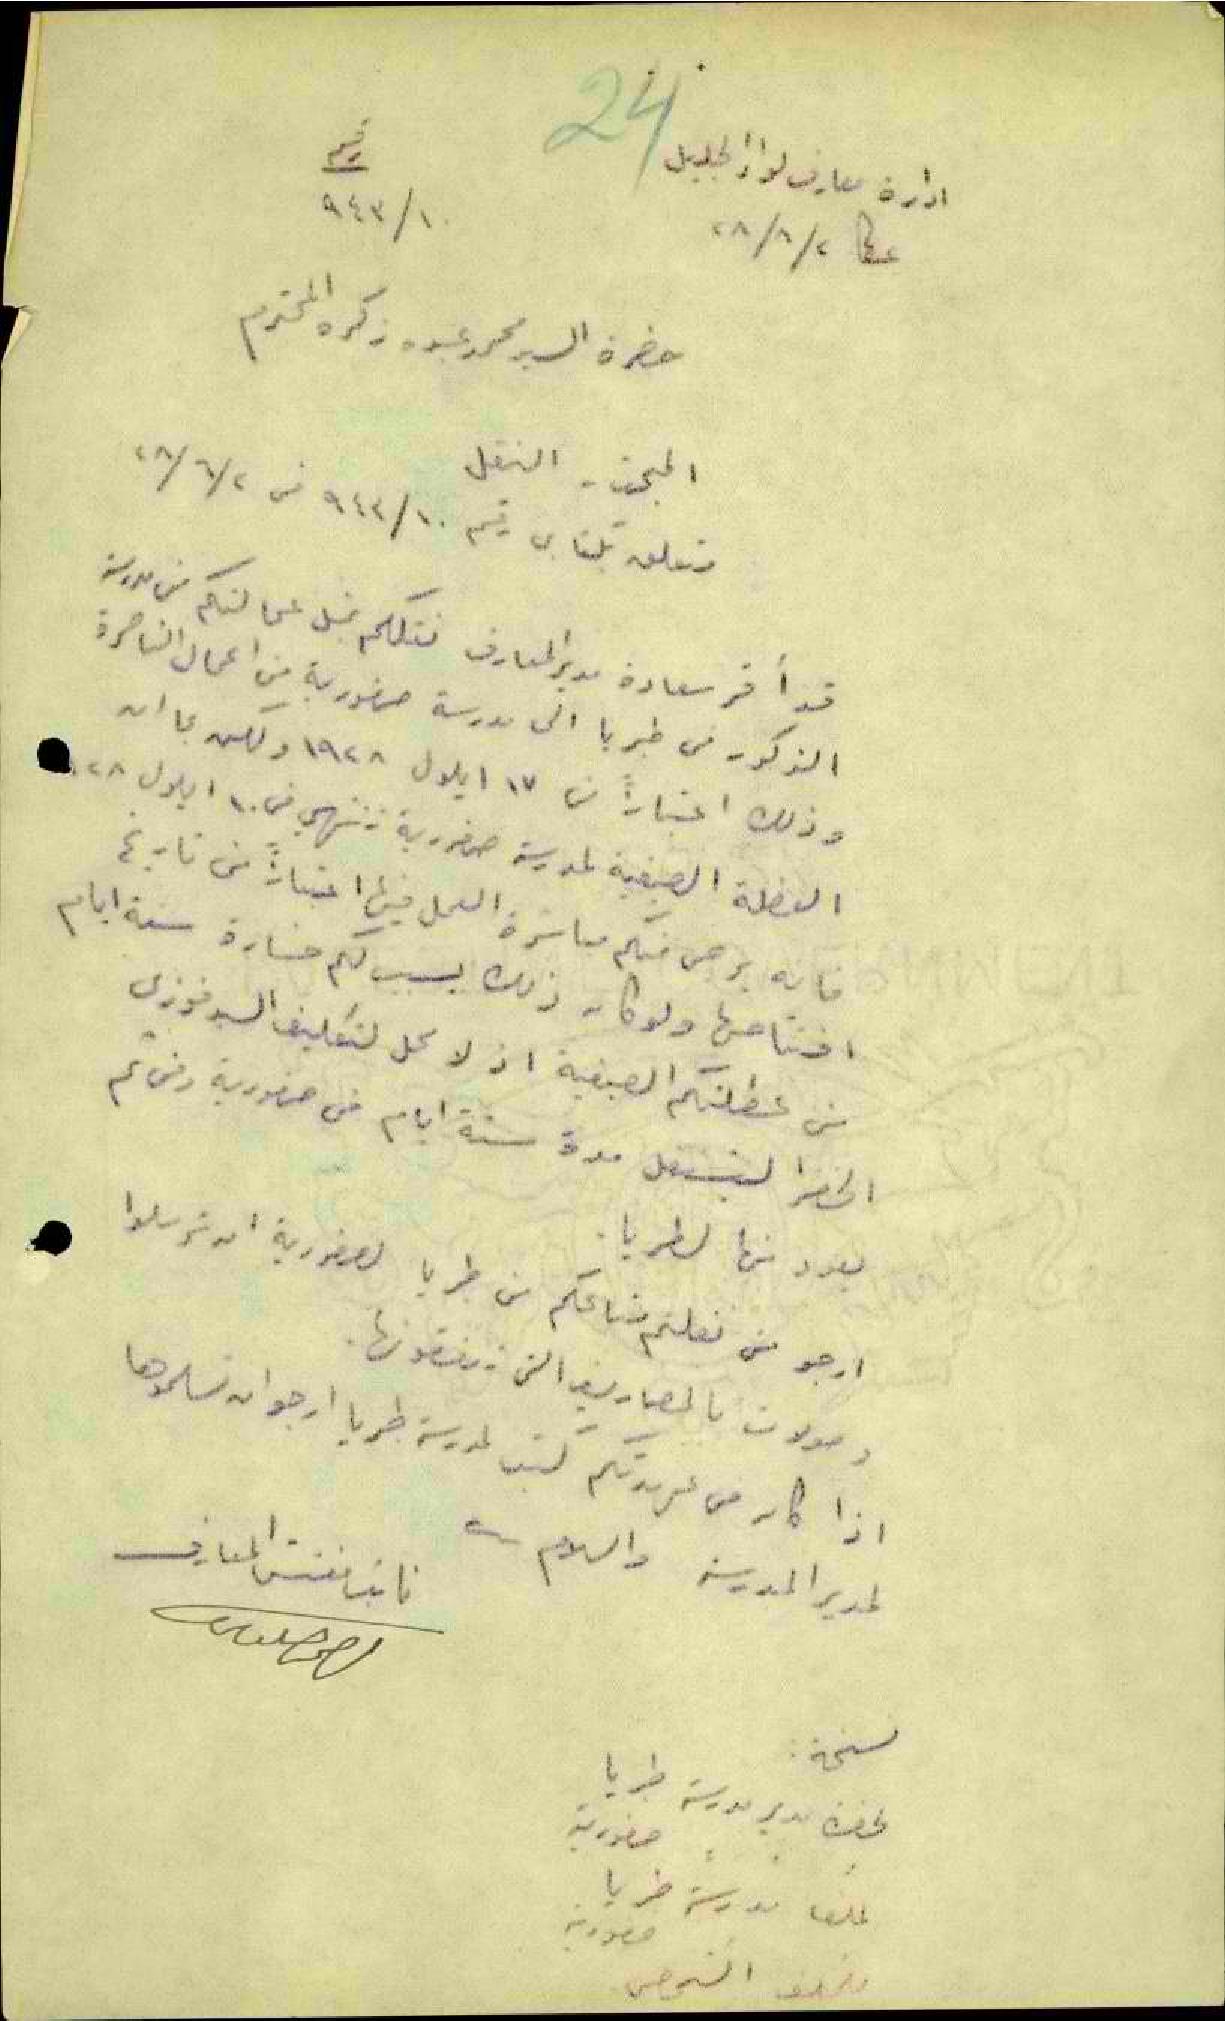 24
ادارة معارف لواء الجليل
رقم
عكا ٢٨/٨/٢
٩٤٣/١٠
حضرة السيد محمد عبده زكره المحترم
المبحث - النقل
متعلق بكتابي رقم ٩٤٣/١٠ في ٢٨/٦/٢
قد أقر سعادة مدير المعارف نقلكم بمثل عمالتكم من مدرسة
الذكور في طبريا الى مدرسة صفورية من اعمال الناصرة
وذلك اعتباراً من ١٧ ايلول ١٩٢٨ ولكن بما ان
العطلة الصيفية لمدرسة صفورية تنتهي في ١٠ ايلول ٩٢٨
فانه يرجى منكم مباشرة العمل فيها اعتباراً من تاريخ
افتتاحها ولو كان ذلك يسبب لكم خسارة ستة ايام
من عطلتكم الصيفية اذ لا محل لتكليف السيد فوزي
الخضرا ليشتغل مدة ستة ايام في صفورية ومن ثم
يعود منها لطبريا.
ارجو متى نقلتم متاعكم من طبريا لصفورية ان ترسلوا
وصولات بالمصاريف التي تنفقونها.
اذا كان في عهدتكم كتب لمدرسة طبريا ارجو ان تسلموها
لمدير المدرسة والسلام
نائب مفتش المعارف
نسخة:
لحضرة مدير مدرسة طبريا
صفورية
لملف مدرسة طبريا
صفورية
الشخصي